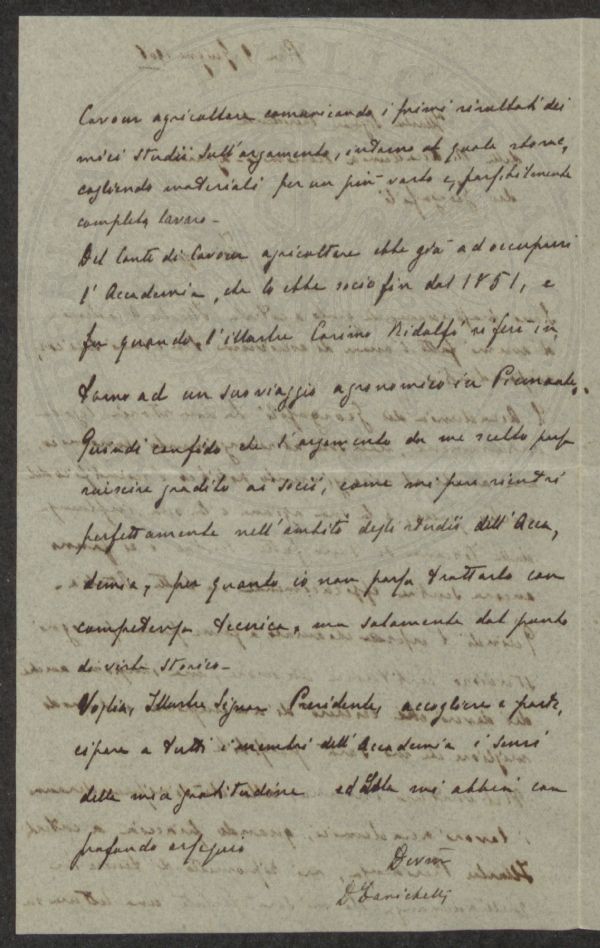 Cavour agricoltore comunicando i primi risultati dei
miei studii sull'argomento, intorno al quale sto rac,
cogliendo materiali per un più vasto e, possibilmente
completo, lavoro -
Del Conte di Cavour agricoltore ebbe già ad occuparsi
l'Accademia, che lo ebbe socio fin dal 1851, e
fu quando l'illustre Cosimo Ridolfi riferì in,
torno ad un suo viaggio agronomico in Piemonte.
Quindi confido che l'argomento da me scelto possa
riuscire gradito ai socii, come mi pare rientri
perfettamente nell'ambito degli studii dell'Acca,
demia, per quanto io non possa trattarlo con
competenza tecnica, ma solamente dal punto
di vista storico -
Voglia, Illustre Signor Presidente, accogliere e parte,
cipare a tutti i membri dell'Accademia i sensi
della mia gratitudine ed Ella mi abbia con
profondo ossequio
Devmo
D Zanichelli